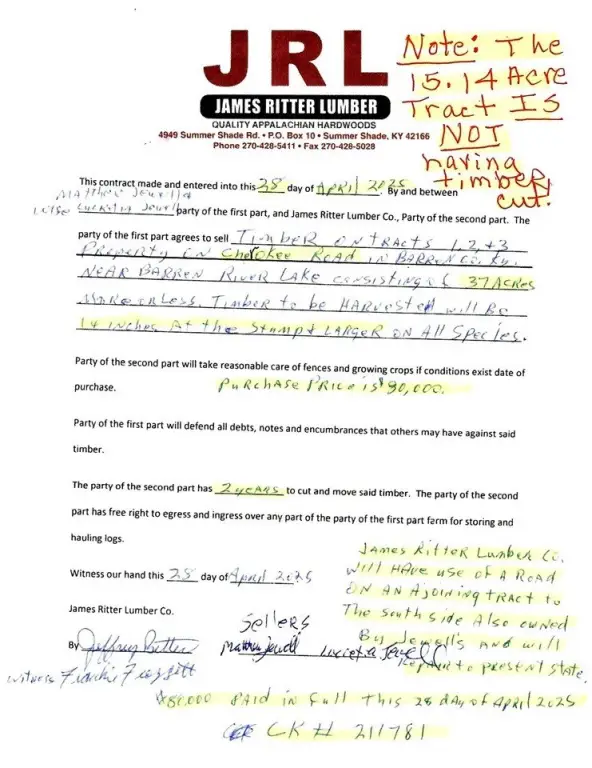 JRL
JAMES RITTER LUMBER
QUALITY APPALACHIAN HARDWOODS
4949 Summer Shade Rd. • P.O. Box 10 • Summer Shade, KY 42166
Phone 270-428-5411 • Fax 270-428-5028
Note: The
15.14 Acre
Tract IS
NOT
having
timber
cut.
This contract made and entered into this 28 day of April 2025. By and between
Matthew Jewell &
Lucretia Jewell party of the first part, and James Ritter Lumber Co., Party of the second part. The
party of the first part agrees to sell Timber on tracts 1, 2, + 3
Property on Cherokee Road in Barren Co. Ky.
Near Barren River Lake consisting of 37 Acres
more or less. Timber to be Harvested will Be
14 inches At the Stump & LARGER ON All Species.
Party of the second part will take reasonable care of fences and growing crops if conditions exist date of
purchase. Purchase Price is $
Party of the first part will defend all debts, notes and encumbrances that others may have against said
timber.
The party of the second part has 2 years to cut and move said timber. The party of the second
part has free right to egress and ingress over any part of the party of the first part farm for storing and
hauling logs.
James Ritter Lumber Co.
will Have use of A Road
ON AN Ajoining tract to
The south side Also owned
By Jewell's AND will
Repair to present state.
Witness our hand this 28 day of April 2025
James Ritter Lumber Co.
Sellers
By Jeffrey Ritter Matthew Jewell Lucretia Jewell
witness Frankie
$80,000 PAID in full This 28 day of April 2025
CK # 211781